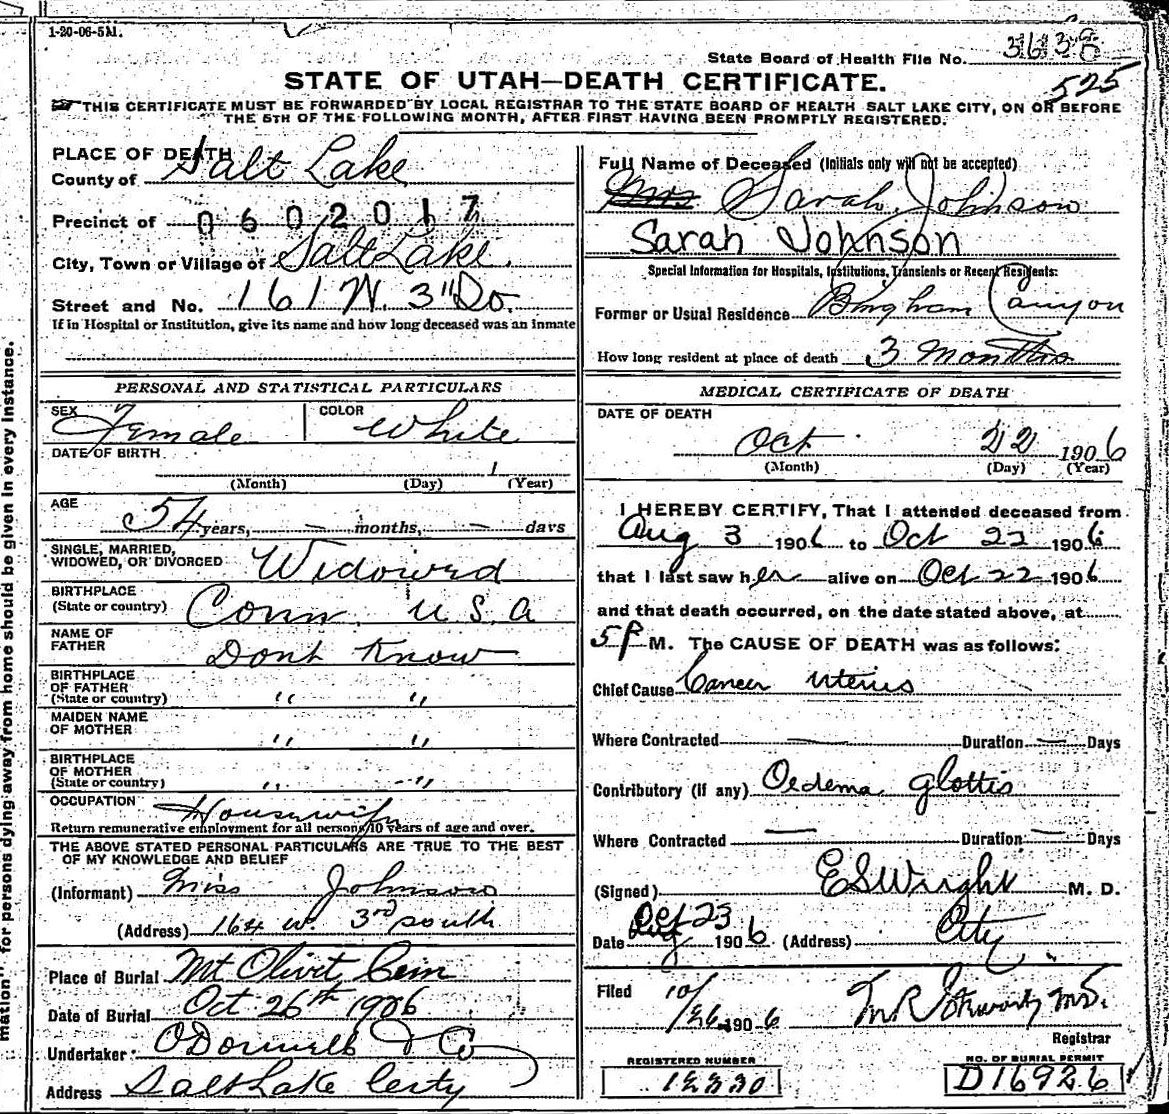 1-20-06-5M.
State Board of Health File No. 3638
525
STATE OF UTAH—DEATH CERTIFICATE.
THIS CERTIFICATE MUST BE FORWARDED BY LOCAL REGISTRAR TO THE STATE BOARD OF HEALTH SALT LAKE CITY, ON OR BEFORE
THE 5TH OF THE FOLLOWING MONTH, AFTER FIRST HAVING BEEN PROMPTLY REGISTERED.
PLACE OF DEATH
County of Salt Lake
Precinct of 0602017
City, Town or Village of Salt Lake.
Street and No. 161 W. 3" So.
If in Hospital or Institution, give its name and how long deceased was an inmate
Full Name of Deceased (Initials only will not be accepted)
Mrs Sarah Johnson
Sarah Johnson
Special Information for Hospitals, Institutions, Transients or Recent Residents:
Former or Usual Residence Bingham Canyon
How long resident at place of death 3 Months
PERSONAL AND STATISTICAL PARTICULARS
SEX Female
COLOR White
DATE OF BIRTH
(Month) (Day) (Year)
AGE 54 years, — months, — days
SINGLE, MARRIED,
WIDOWED, OR DIVORCED Widowed
BIRTHPLACE
(State or country) Conn. U.S.A
NAME OF
FATHER Dont Know
BIRTHPLACE
OF FATHER
(State or country) " "
MAIDEN NAME
OF MOTHER " "
BIRTHPLACE
OF MOTHER
(State or country) " "
OCCUPATION Housewife
Return remunerative employment for all persons 10 years of age and over.
THE ABOVE STATED PERSONAL PARTICULARS ARE TRUE TO THE BEST
OF MY KNOWLEDGE AND BELIEF
(Informant) Miss Johnson
(Address) 164 W. 3rd South
Place of Burial Mt Olivit Cem
Date of Burial Oct 26th 1906
Undertaker: O'Donnell & Co
Address Salt Lake City
MEDICAL CERTIFICATE OF DEATH
DATE OF DEATH
Oct. 22 1906
(Month) (Day) (Year)
I HEREBY CERTIFY, That I attended deceased from
Aug 3 1906 to Oct 22 1906
that I last saw her alive on Oct 22 1906
and that death occurred, on the date stated above, at
5 P M. The CAUSE OF DEATH was as follows:
Chief Cause Cancer Uterus
Where Contracted — Duration — Days
Contributory (if any) Oedema glottis
Where Contracted — Duration — Days
(Signed) E S Wright M. D.
Date Oct 23 1906 (Address) City
Filed 10/26 1906
Registrar
REGISTERED NUMBER
NO. OF BURIAL PERMIT
D16926
mation" for persons dying away from home should be given in every instance.